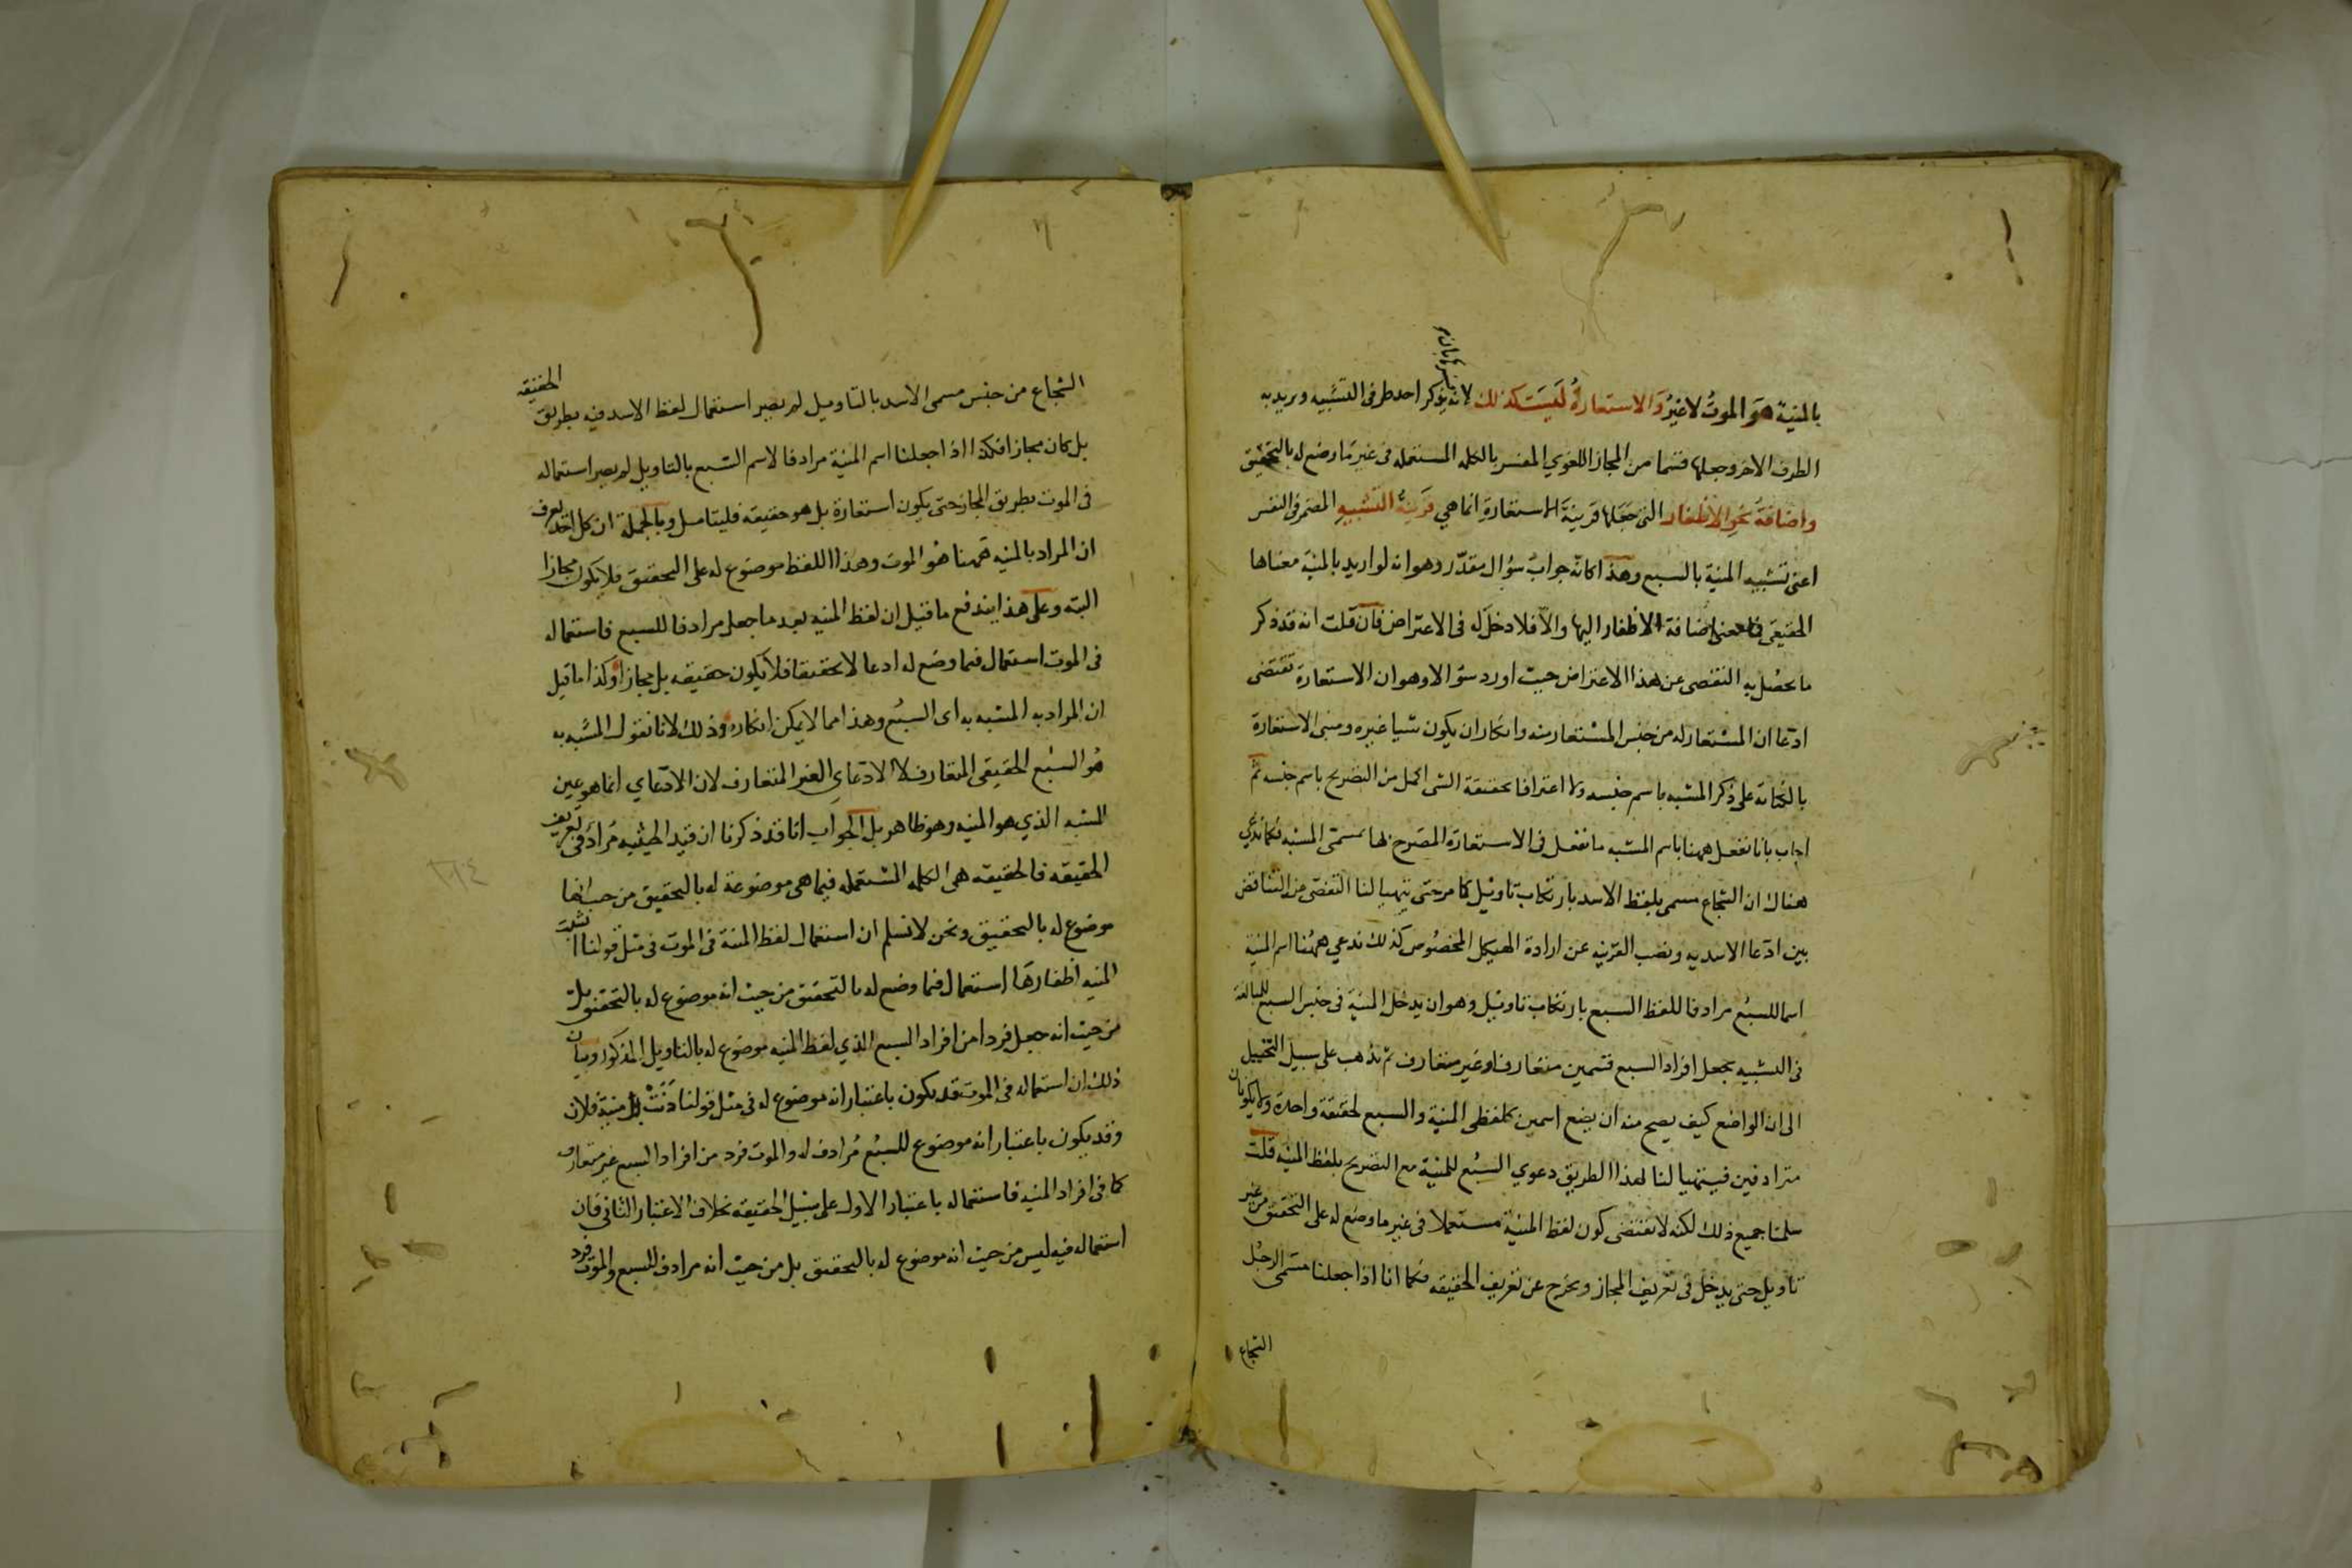 بالمنية هو الموت لا غير والاستعارة ليست كذلك لانه يذكر احد طرفى التشبيه ويريد به
الطرف الاخر وجعلها قسما من المجاز اللغوي المفسر بالكلمه المستعمله فى غير ما وضع له بالتحقيق
واضافة نحو الاظفار التى جعلها قرينة الاستعارة انما هي قرينة التشبيه المضمر فى النفس
اعنى تشبيه المنية بالسبع وهذا كانه جواب سؤال مقدر وهو انه لو اريد بالمنية معناها
الحقيقى فما معنى اضافة الاظفار اليها والا فلا دخل له فى الاعتراض فان قلت انه قد ذكر
ما يحصل به التفصى عن هذا الاعتراض حيث اورد سؤالا وهو ان الاستعارة تقتضى
ادعا ان المستعار له من جنس المستعار منه وانكار ان يكون شيا غيره ومبنى الاستعارة
بالكناية على ذكر المشبه باسم جنسه ولا اعترافا بحقيقة الشى اكمل من التصريح باسم جنسه ثم
اجاب بانا نفعل ههنا باسم المشبه ما نفعل فى الاستعارة المصرح بها بمسمى المشبه فكما ندعي
هناك ان الشجاع مسمى بلفظ الاسد بارتكاب تاويل كما مر حتى يتهيا لنا التفصى من التناقض
بين ادعا الاسديه ونصب القرينه عن ارادة الهيكل المخصوص كذلك ندعي ههنا اسم المنية
اسما للسبع مرادفا للفظ السبع بارتكاب تاويل وهو ان يدخل المنية فى جنس السبع للمبالغة
فى التشبيه بجعل افراد السبع قسمين متعارفا وغير متعارف ثم نذهب على سبيل التخييل
الى ان الواضع كيف يصح منه ان يضع اسمين كلفظى المنية والسبع لحقيقة واحدة ولا يكونان
مترادفين فيتهيا لنا لهذا الطريق دعوي السبع للمنية مع التصريح بلفظ المنية قلت
سلمنا جميع ذلك لكنه لا يقتضى كون لفظ المنية مستعملا فى غير ما وضع له على التحقيق من غير
تاويل حتى يدخل فى تعريف المجاز ويخرج عن تعريف الحقيقه فكما انا اذا جعلنا مسمى الرجل
الشجاع
الشجاع من جنس مسمى الاسد بالتاويل لم يصر استعمال لفظ الاسد فيه بطريق الحقيقه
بل كان مجازا فكذا اذا جعلنا اسم المنية مرادفا لاسم السبع بالتاويل لم يصر استعماله
فى الموت بطريق المجاز حتى يكون استعارة بل هو حقيقه فليتامل وبالجملة ان كل احد يعرف
ان المراد بالمنيه ههنا هو الموت وهذا اللفظ موضوع له على التحقيق فلا يكون مجازا
البته وعلى هذا يندفع ما قيل ان لفظ المنيه بعد ما جعل مرادفا للسبع فاستعماله
فى الموت استعمال فيما وضع له ادعا لا تحقيقا فلا يكون حقيقه بل مجازا وكذا ما قيل
ان المراد به المشبه به اى السبع وهذا مما لا يمكن انكاره وذلك لانا نقول المشبه به
هو السبع الحقيقى المتعارف لا الادعاي الغير المتعارف لان الادعاي انما هو عين
المشبه الذي هو المنيه وهو ظاهر بل الجواب انا قد ذكرنا ان قيد الحيثيه مراد فى تعريف
الحقيقه فالحقيقه هى الكلمه المستعمله فيما هى موضوعة له بالتحقيق من حيث انها
موضوع له بالتحقيق ونحن لا نسلم ان استعمال لفظ المنية فى الموت فى مثل قولنا انشبت
المنيه اظفارها استعمال فيما وضع له بالتحقيق من حيث انه موضوع له بالتحقيق بل
من حيث انه جعل فردا من افراد السبع الذي لفظ المنيه موضوع له بالتاويل المذكور وبيان
ذلك ان استعماله فى الموت قد يكون باعتبار انه موضوع له فى مثل قولنا دنت منية فلان
وقد يكون باعتبار انه موضوع للسبع مرادف له والموت فرد من افراد السبع غير متعارف
كما فى افراد المنيه فاستعماله باعتبار الاول على سبيل الحقيقه بخلاف الاعتبار الثانى فان
استعماله فيه ليس من حيث انه موضوع له بالتحقيق بل من حيث انه مرادف للسبع والموت فرد